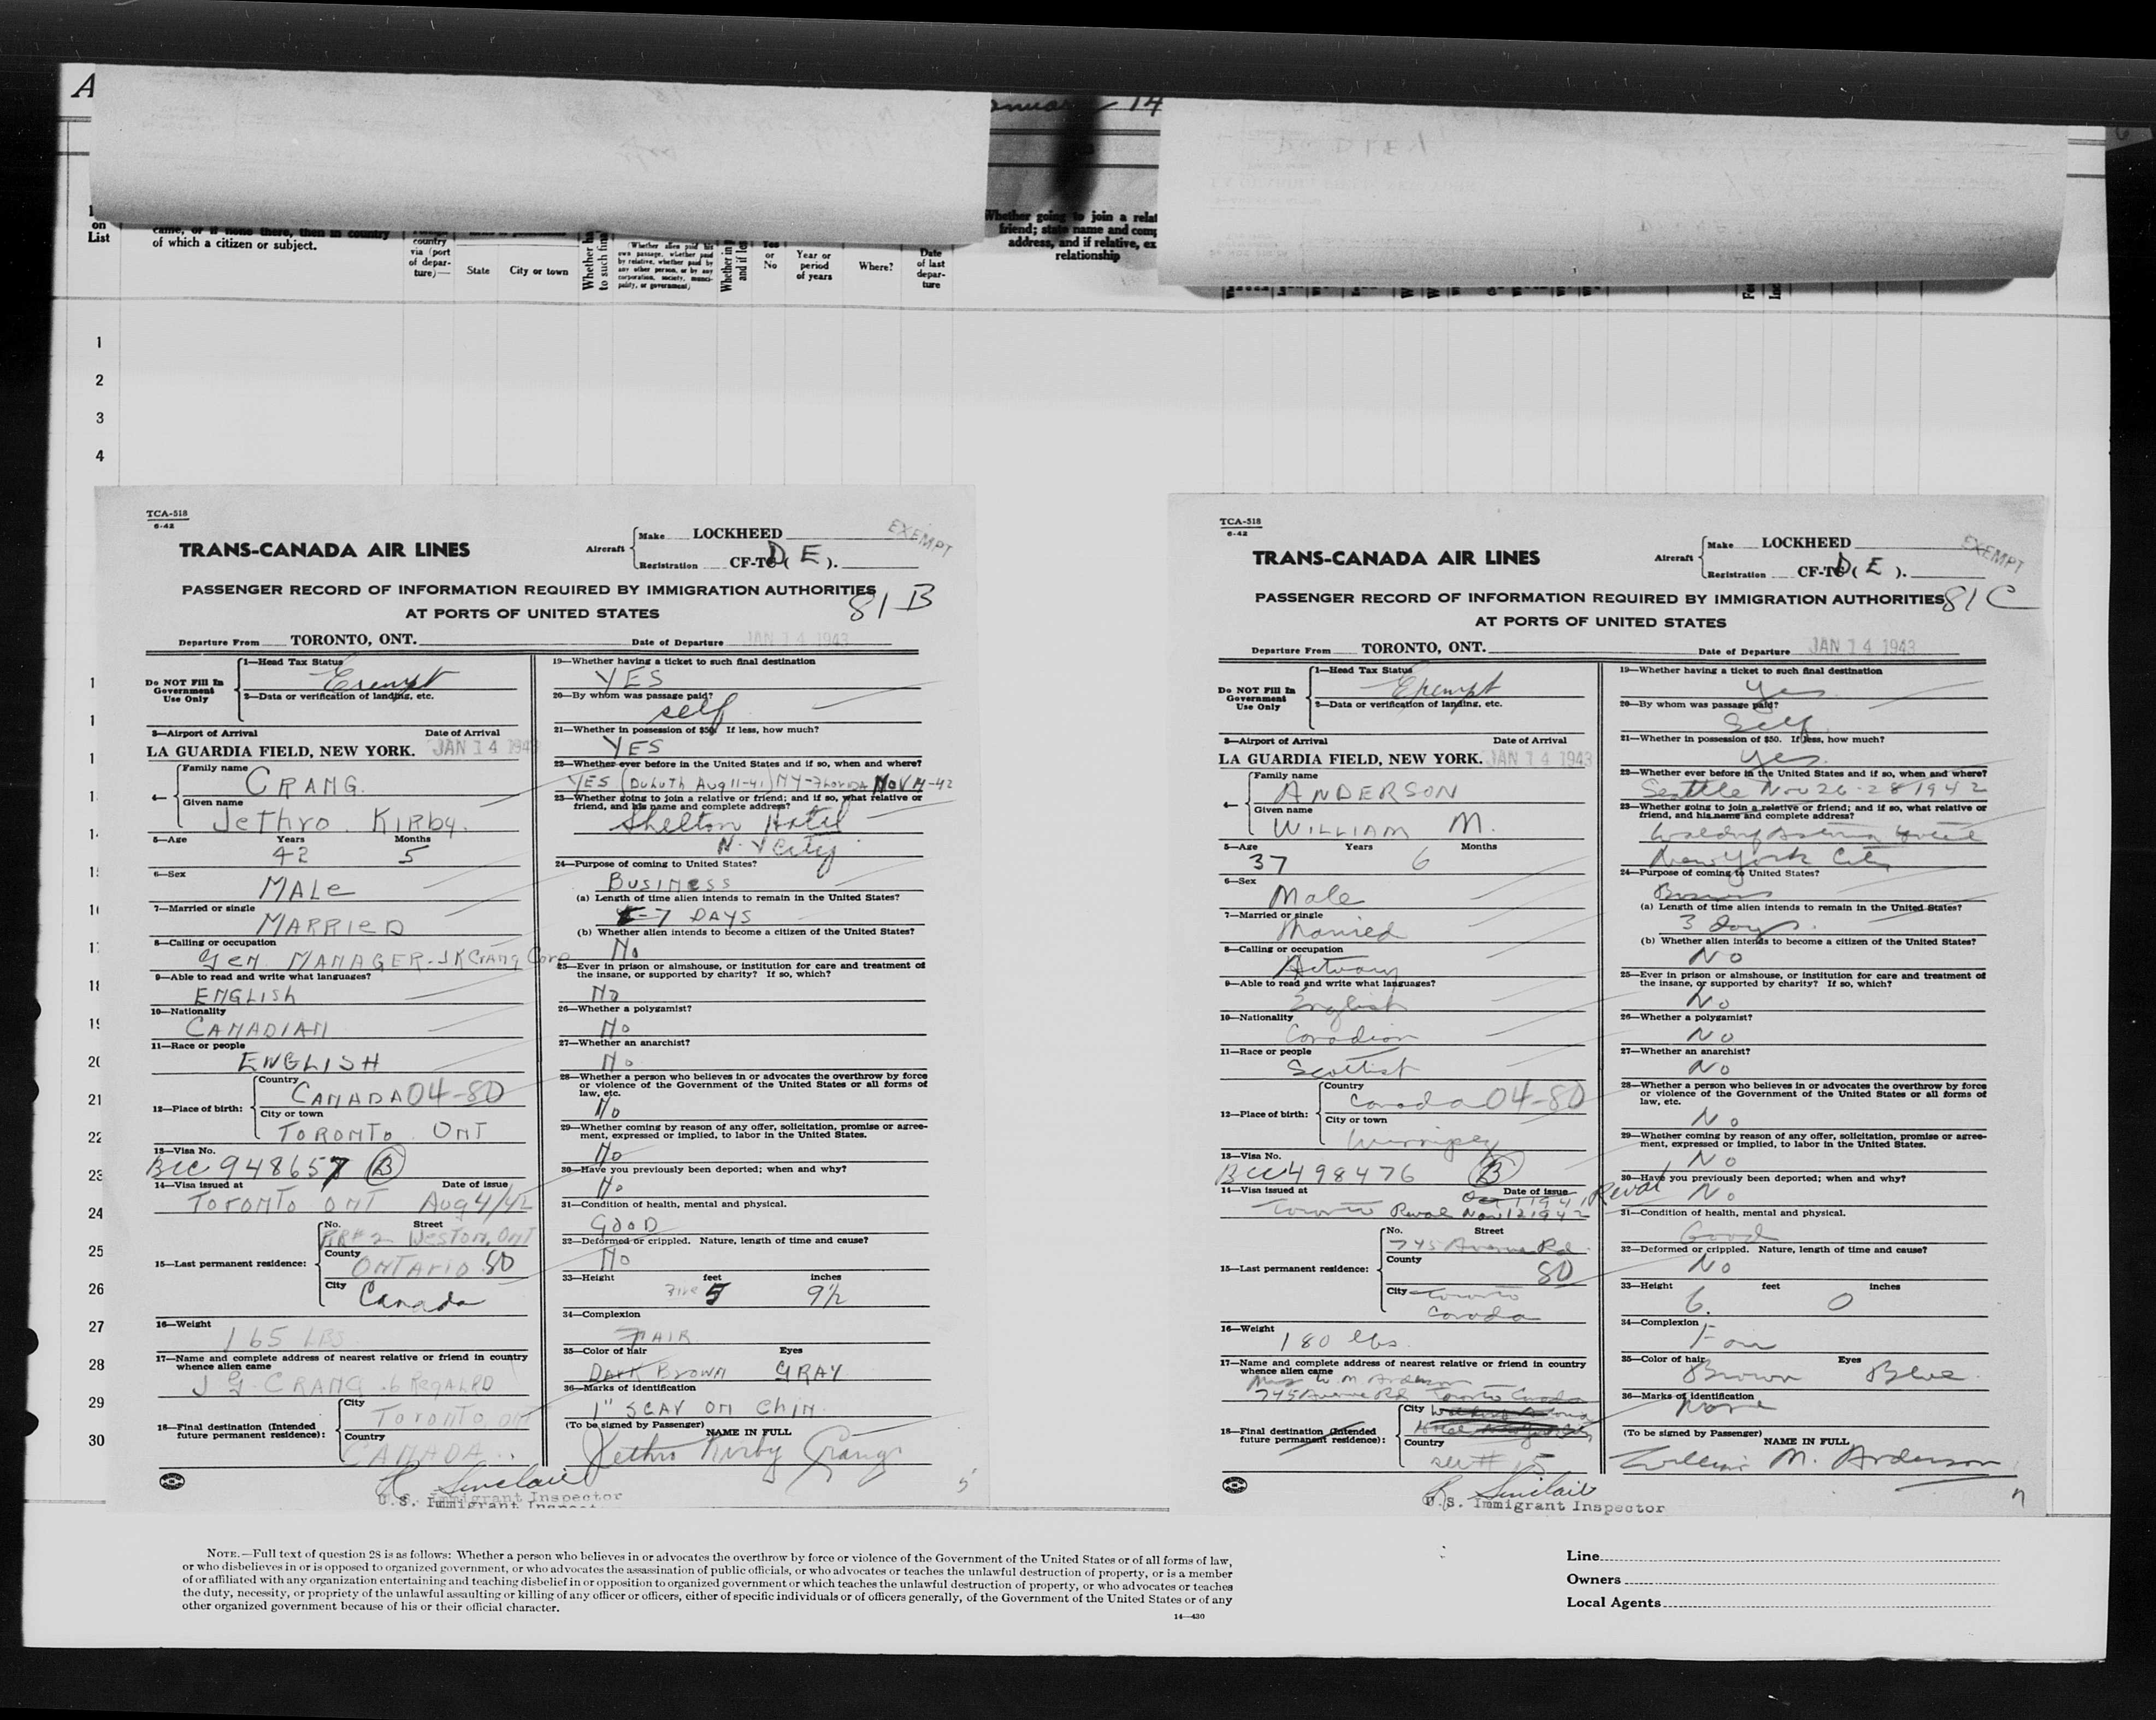 A
14
on
List
came, or if none there, then in country
of which a citizen or subject.
country
via (port
of depar-
ture)—
State
City or town
(Whether alien paid his
own passage, whether paid
by relative, whether paid by
any other person, or by any
corporation, society, munici-
pality, or government)
Yes
or
No
Year or
period
of years
Where?
Date
of last
depar-
ture
Whether going to join a relat
friend; state name and comp
address, and if relative, ex
relationship
1
2
3
4
TCA-518
6-42
TRANS-CANADA AIR LINES
Aircraft
Make LOCKHEED
Registration CF-TC (D E).
EXEMPT
PASSENGER RECORD OF INFORMATION REQUIRED BY IMMIGRATION AUTHORITIES
AT PORTS OF UNITED STATES
81 B
Departure From TORONTO, ONT.
Date of Departure JAN 14 1943
Do NOT Fill In
Government
Use Only
1—Head Tax Status
Exempt
2—Data or verification of landing, etc.
3—Airport of Arrival Date of Arrival
LA GUARDIA FIELD, NEW YORK. JAN 14 194
4—
Family name
CRANG.
Given name
Jethro. Kirby.
5—Age Years Months
42 5
6—Sex
MALe
7—Married or single
MARRIED
8—Calling or occupation
Gen. MANAGER. JKCrang Corp
9—Able to read and write what languages?
ENGLISh
10—Nationality
CANADIAN
11—Race or people
ENGLISH
12—Place of birth:
Country
CANADA 04-80
City or town
TORONTO ONT
13—Visa No.
BCC 948657 B
14—Visa issued at Date of issue
TORONTO ONT Aug 4/42
15—Last permanent residence:
No. Street
RR#2 Weston, Ont
County
ONTARIO 80
City
Canada
16—Weight
165 LBS
17—Name and complete address of nearest relative or friend in country
whence alien came
J G. CRANG. 6 Regal RD
18—Final destination (Intended
future permanent residence):
City
Toronto, Ont
Country
CANADA
Sinclair
U.S. Immigrant Inspector
19—Whether having a ticket to such final destination
YES
20—By whom was passage paid?
self
21—Whether in possession of $50. If less, how much?
YES
22—Whether ever before in the United States and if so, when and where?
YES (Duluth Aug 11-41) NY-Florida Nov -42
23—Whether going to join a relative or friend; and if so, what relative or
friend, and his name and complete address?
Shelton Hotel
N.Y City
24—Purpose of coming to United States?
BUSINESS
(a) Length of time alien intends to remain in the United States?
7 DAYS
(b) Whether alien intends to become a citizen of the United States?
No
25—Ever in prison or almshouse, or institution for care and treatment of
the insane, or supported by charity? If so, which?
No
26—Whether a polygamist?
No
27—Whether an anarchist?
No
28—Whether a person who believes in or advocates the overthrow by force
or violence of the Government of the United States or all forms of
law, etc.
No
29—Whether coming by reason of any offer, solicitation, promise or agree-
ment, expressed or implied, to labor in the United States.
No
30—Have you previously been deported; when and why?
No
31—Condition of health, mental and physical.
GOOD
32—Deformed or crippled. Nature, length of time and cause?
No
33—Height feet inches
Five 5 9½
34—Complexion
FAIR
35—Color of hair Eyes
Dark Brown GRAY
36—Marks of identification
1" SCAV ON Chin.
(To be signed by Passenger)
NAME IN FULL
Jethro Kirby Crang
5
TCA-518
6-42
TRANS-CANADA AIR LINES
Aircraft
Make LOCKHEED
Registration CF-TC (D E).
EXEMPT
PASSENGER RECORD OF INFORMATION REQUIRED BY IMMIGRATION AUTHORITIES
AT PORTS OF UNITED STATES
81 C
Departure From TORONTO, ONT.
Date of Departure JAN 14 1943
Do NOT Fill In
Government
Use Only
1—Head Tax Status
Exempt
2—Data or verification of landing, etc.
3—Airport of Arrival Date of Arrival
LA GUARDIA FIELD, NEW YORK. JAN 14 1943
4—
Family name
ANDERSON
Given name
WILLIAM M.
5—Age Years Months
37 6
6—Sex
Male
7—Married or single
Married
8—Calling or occupation
Actuary
9—Able to read and write what languages?
English
10—Nationality
Canadian
11—Race or people
Scottish
12—Place of birth:
Country
Canada 04-80
City or town
Winnipeg
13—Visa No.
BCC 498476 B
14—Visa issued at Date of issue
Oct 1 1941
Toronto Reval Nov 12 1942 Reval
15—Last permanent residence:
No. Street
745 Avenue Rd.
County
80
City Toronto
Canada
16—Weight
180 lbs.
17—Name and complete address of nearest relative or friend in country
whence alien came
Mrs W. M. Anderson
745 Avenue Rd Toronto Canada
18—Final destination (Intended
future permanent residence):
City
Country
see # 15
Sinclair
U.S. Immigrant Inspector
19—Whether having a ticket to such final destination
Yes
20—By whom was passage paid?
Self
21—Whether in possession of $50. If less, how much?
Yes
22—Whether ever before in the United States and if so, when and where?
Seattle Nov 26-28 1942
23—Whether going to join a relative or friend; and if so, what relative or
friend, and his name and complete address?
Waldorf Astoria Hotel
New York City
24—Purpose of coming to United States?
(a) Length of time alien intends to remain in the United States?
3 days.
(b) Whether alien intends to become a citizen of the United States?
No
25—Ever in prison or almshouse, or institution for care and treatment of
the insane, or supported by charity? If so, which?
No
26—Whether a polygamist?
No
27—Whether an anarchist?
No
28—Whether a person who believes in or advocates the overthrow by force
or violence of the Government of the United States or all forms of
law, etc.
No
29—Whether coming by reason of any offer, solicitation, promise or agree-
ment, expressed or implied, to labor in the United States.
No
30—Have you previously been deported; when and why?
No
31—Condition of health, mental and physical.
Good
32—Deformed or crippled. Nature, length of time and cause?
No
33—Height feet inches
6. 0
34—Complexion
Fair
35—Color of hair Eyes
Brown Blue
36—Marks of identification
None
(To be signed by Passenger)
NAME IN FULL
William M. Anderson
20
21
22
23
24
25
26
27
28
29
30
NOTE.—Full text of question 28 is as follows: Whether a person who believes in or advocates the overthrow by force or violence of the Government of the United States or of all forms of law,
or who disbelieves in or is opposed to organized government, or who advocates the assassination of public officials, or who advocates or teaches the unlawful destruction of property, or is a member
of or affiliated with any organization entertaining and teaching disbelief in or opposition to organized government or which teaches the unlawful destruction of property, or who advocates or teaches
the duty, necessity, or propriety of the unlawful assaulting or killing of any officer or officers, either of specific individuals or of officers generally, of the Government of the United States or of any
other organized government because of his or their official character.
14—430
Line
Owners
Local Agents